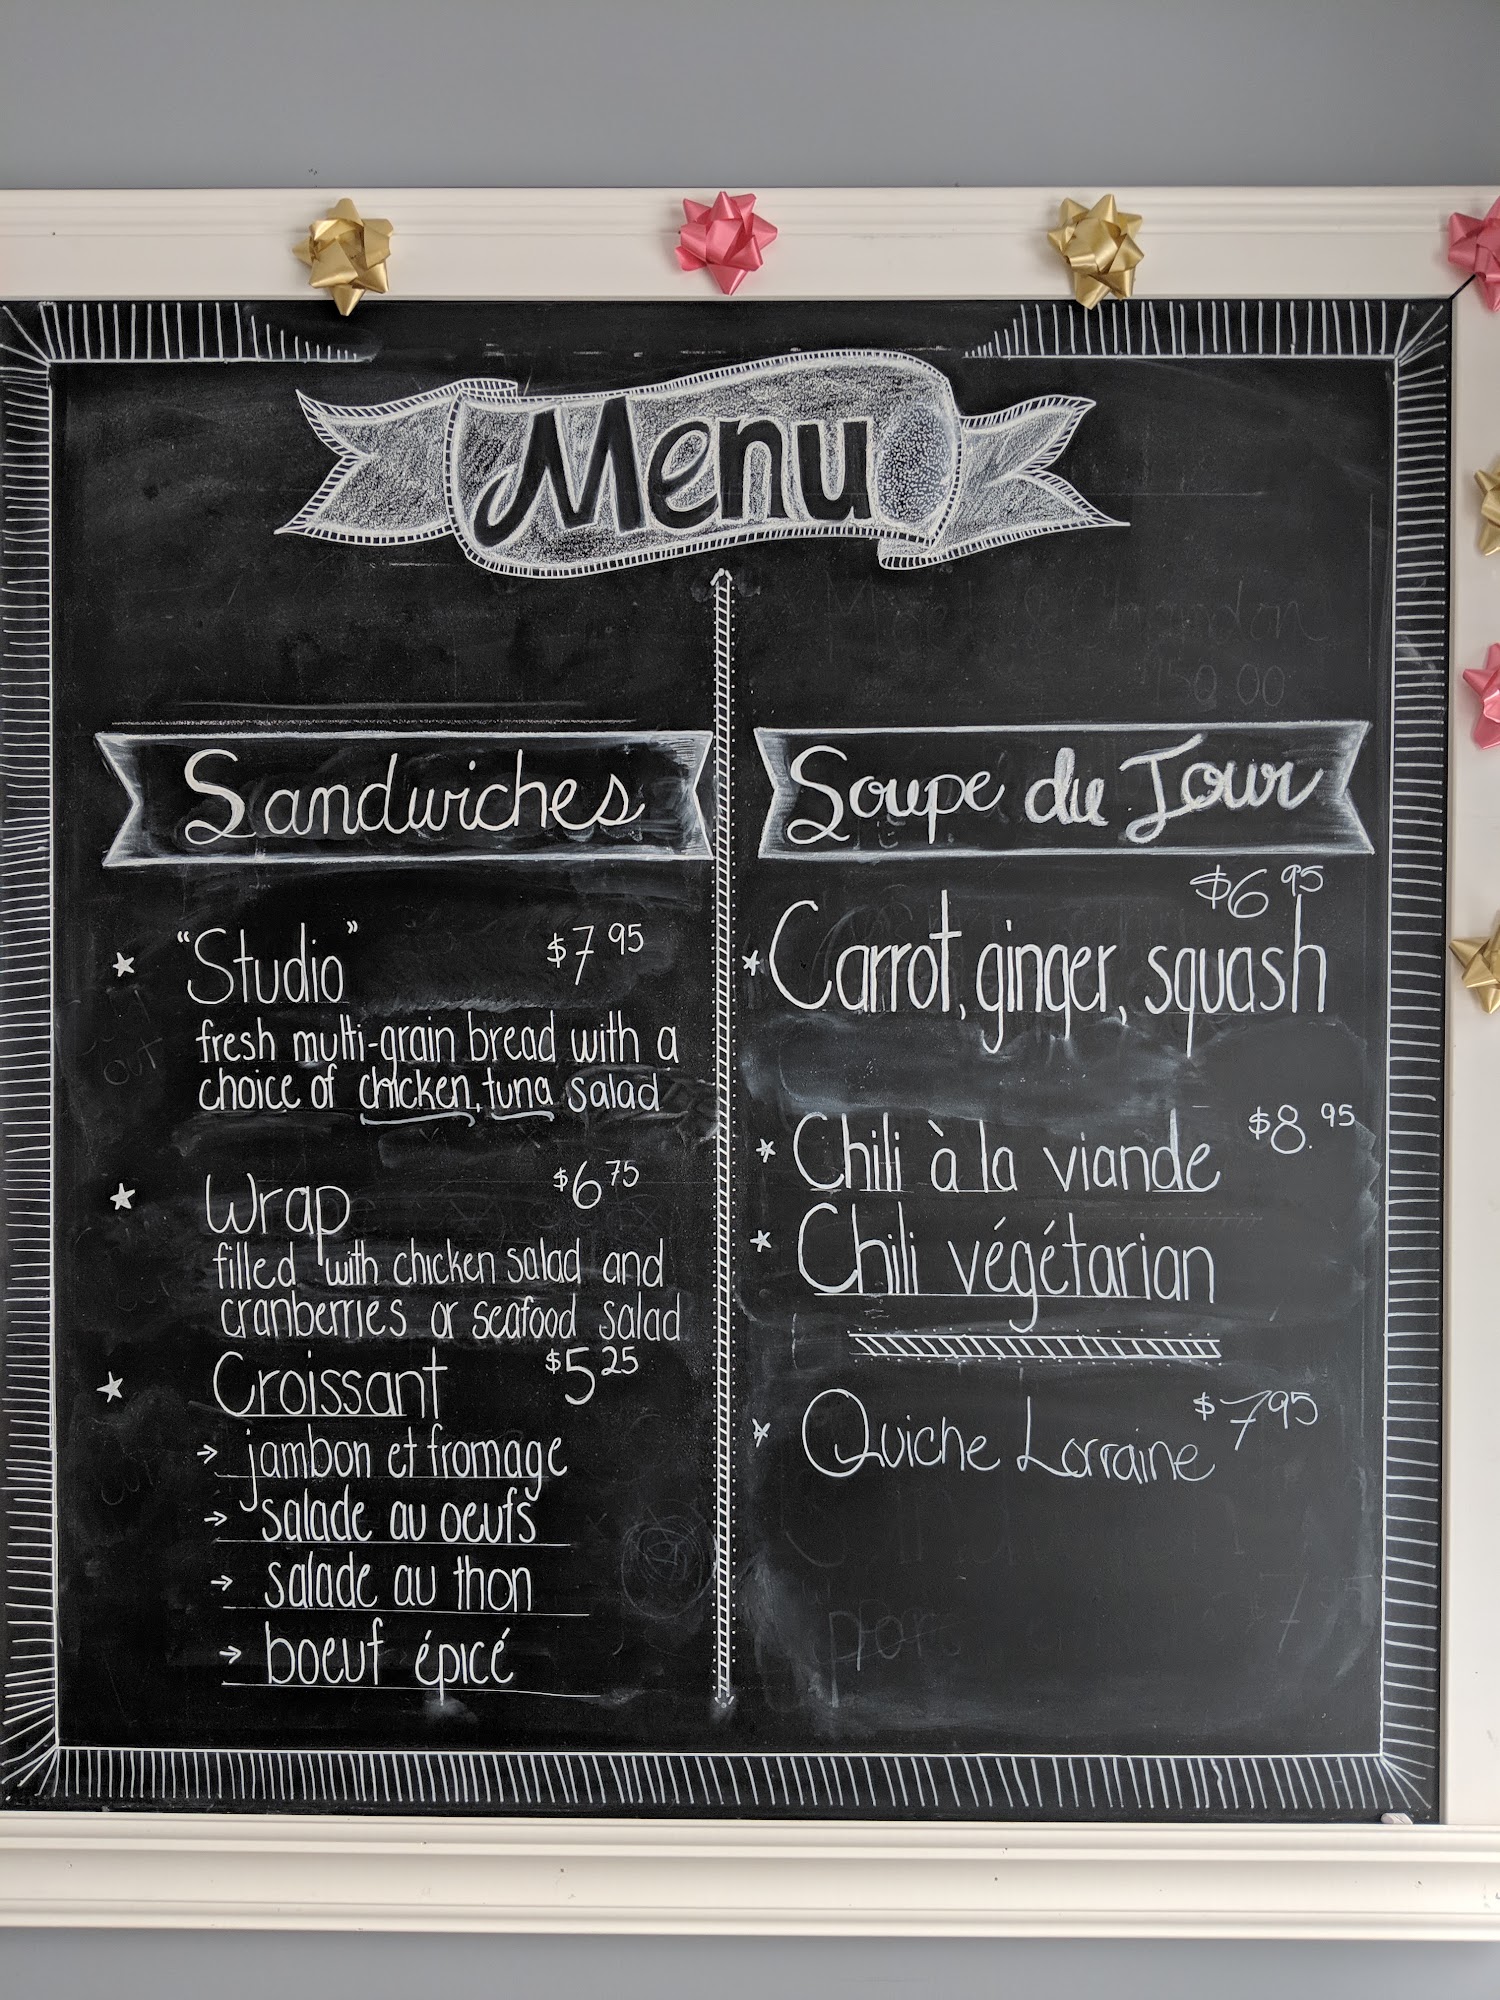 Menu
Sandwiches
"Studio" $7 95
fresh multi-grain bread with a
choice of chicken, tuna salad
Wrap $6 75
filled with chicken salad and
cranberries or seafood salad
Croissant $5 25
→ jambon et fromage
→ salade au oeufs
→ salade au thon
→ boeuf épicé
Soupe du Jour
$6 95
Carrot, ginger, squash
Chili à la viande $8. 95
Chili végétarian
Quiche Lorraine $7 95